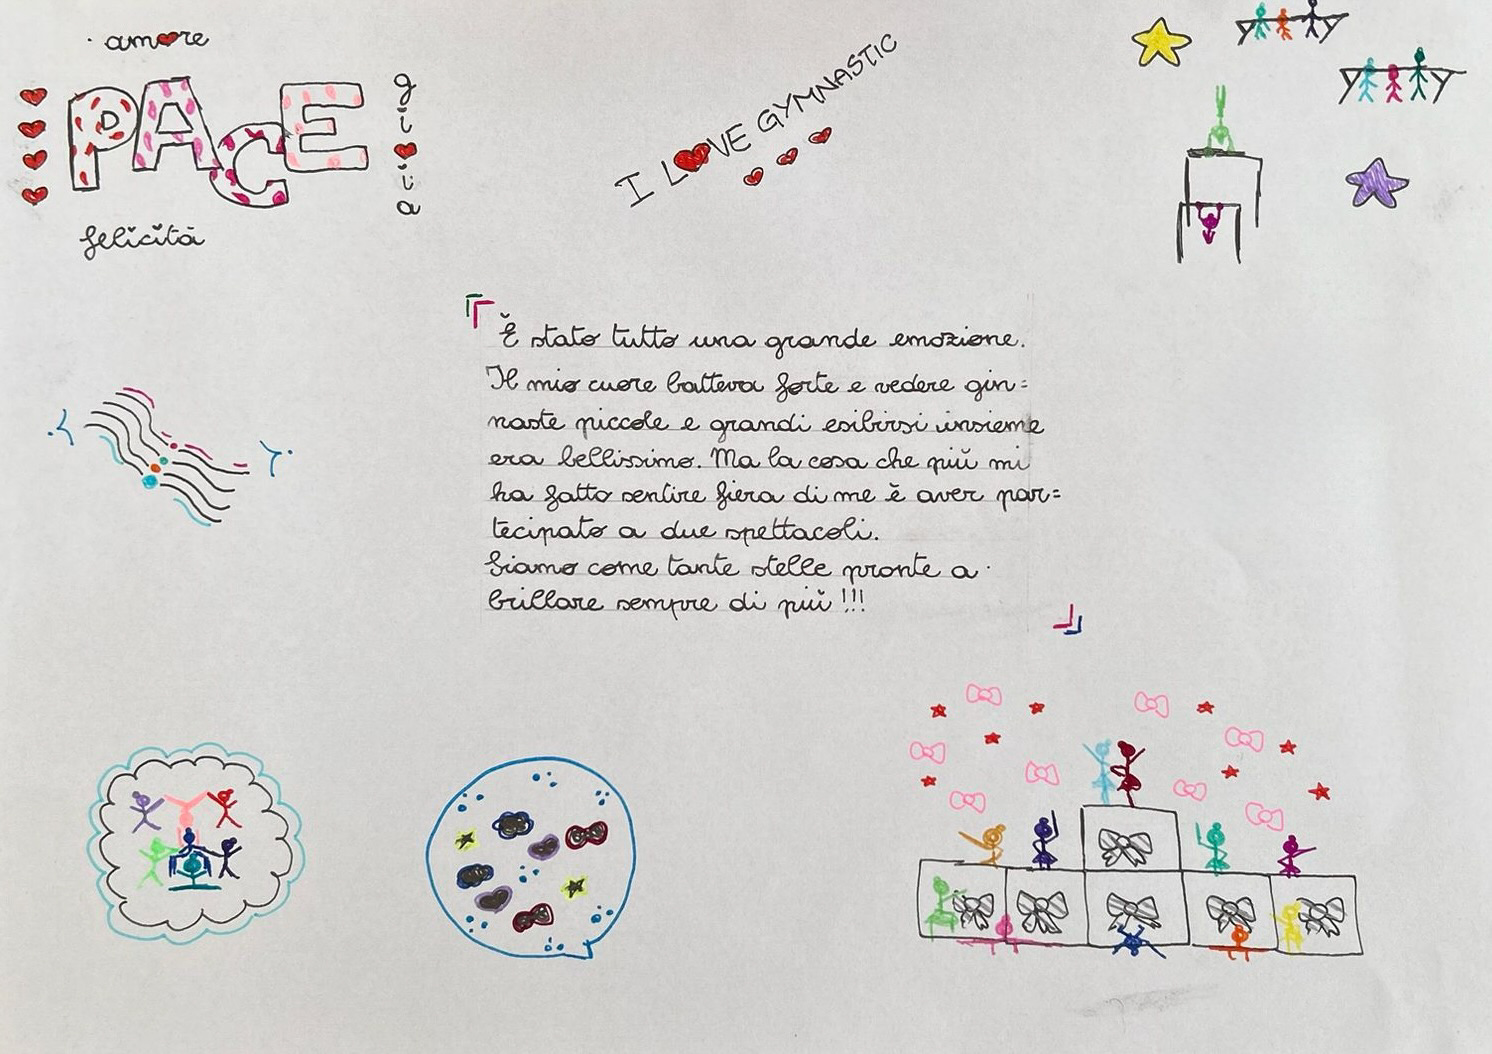 amore
PACE
gioia
felicità
I LOVE GYMNASTIC
È stato tutto una grande emozione.
Il mio cuore batteva forte e vedere gin=
naste piccole e grandi esibirsi insieme
era bellissimo. Ma la cosa che più mi
ha fatto sentire fiera di me è aver par=
tecipato a due spettacoli.
Siamo come tante stelle pronte a
brillare sempre di più !!!